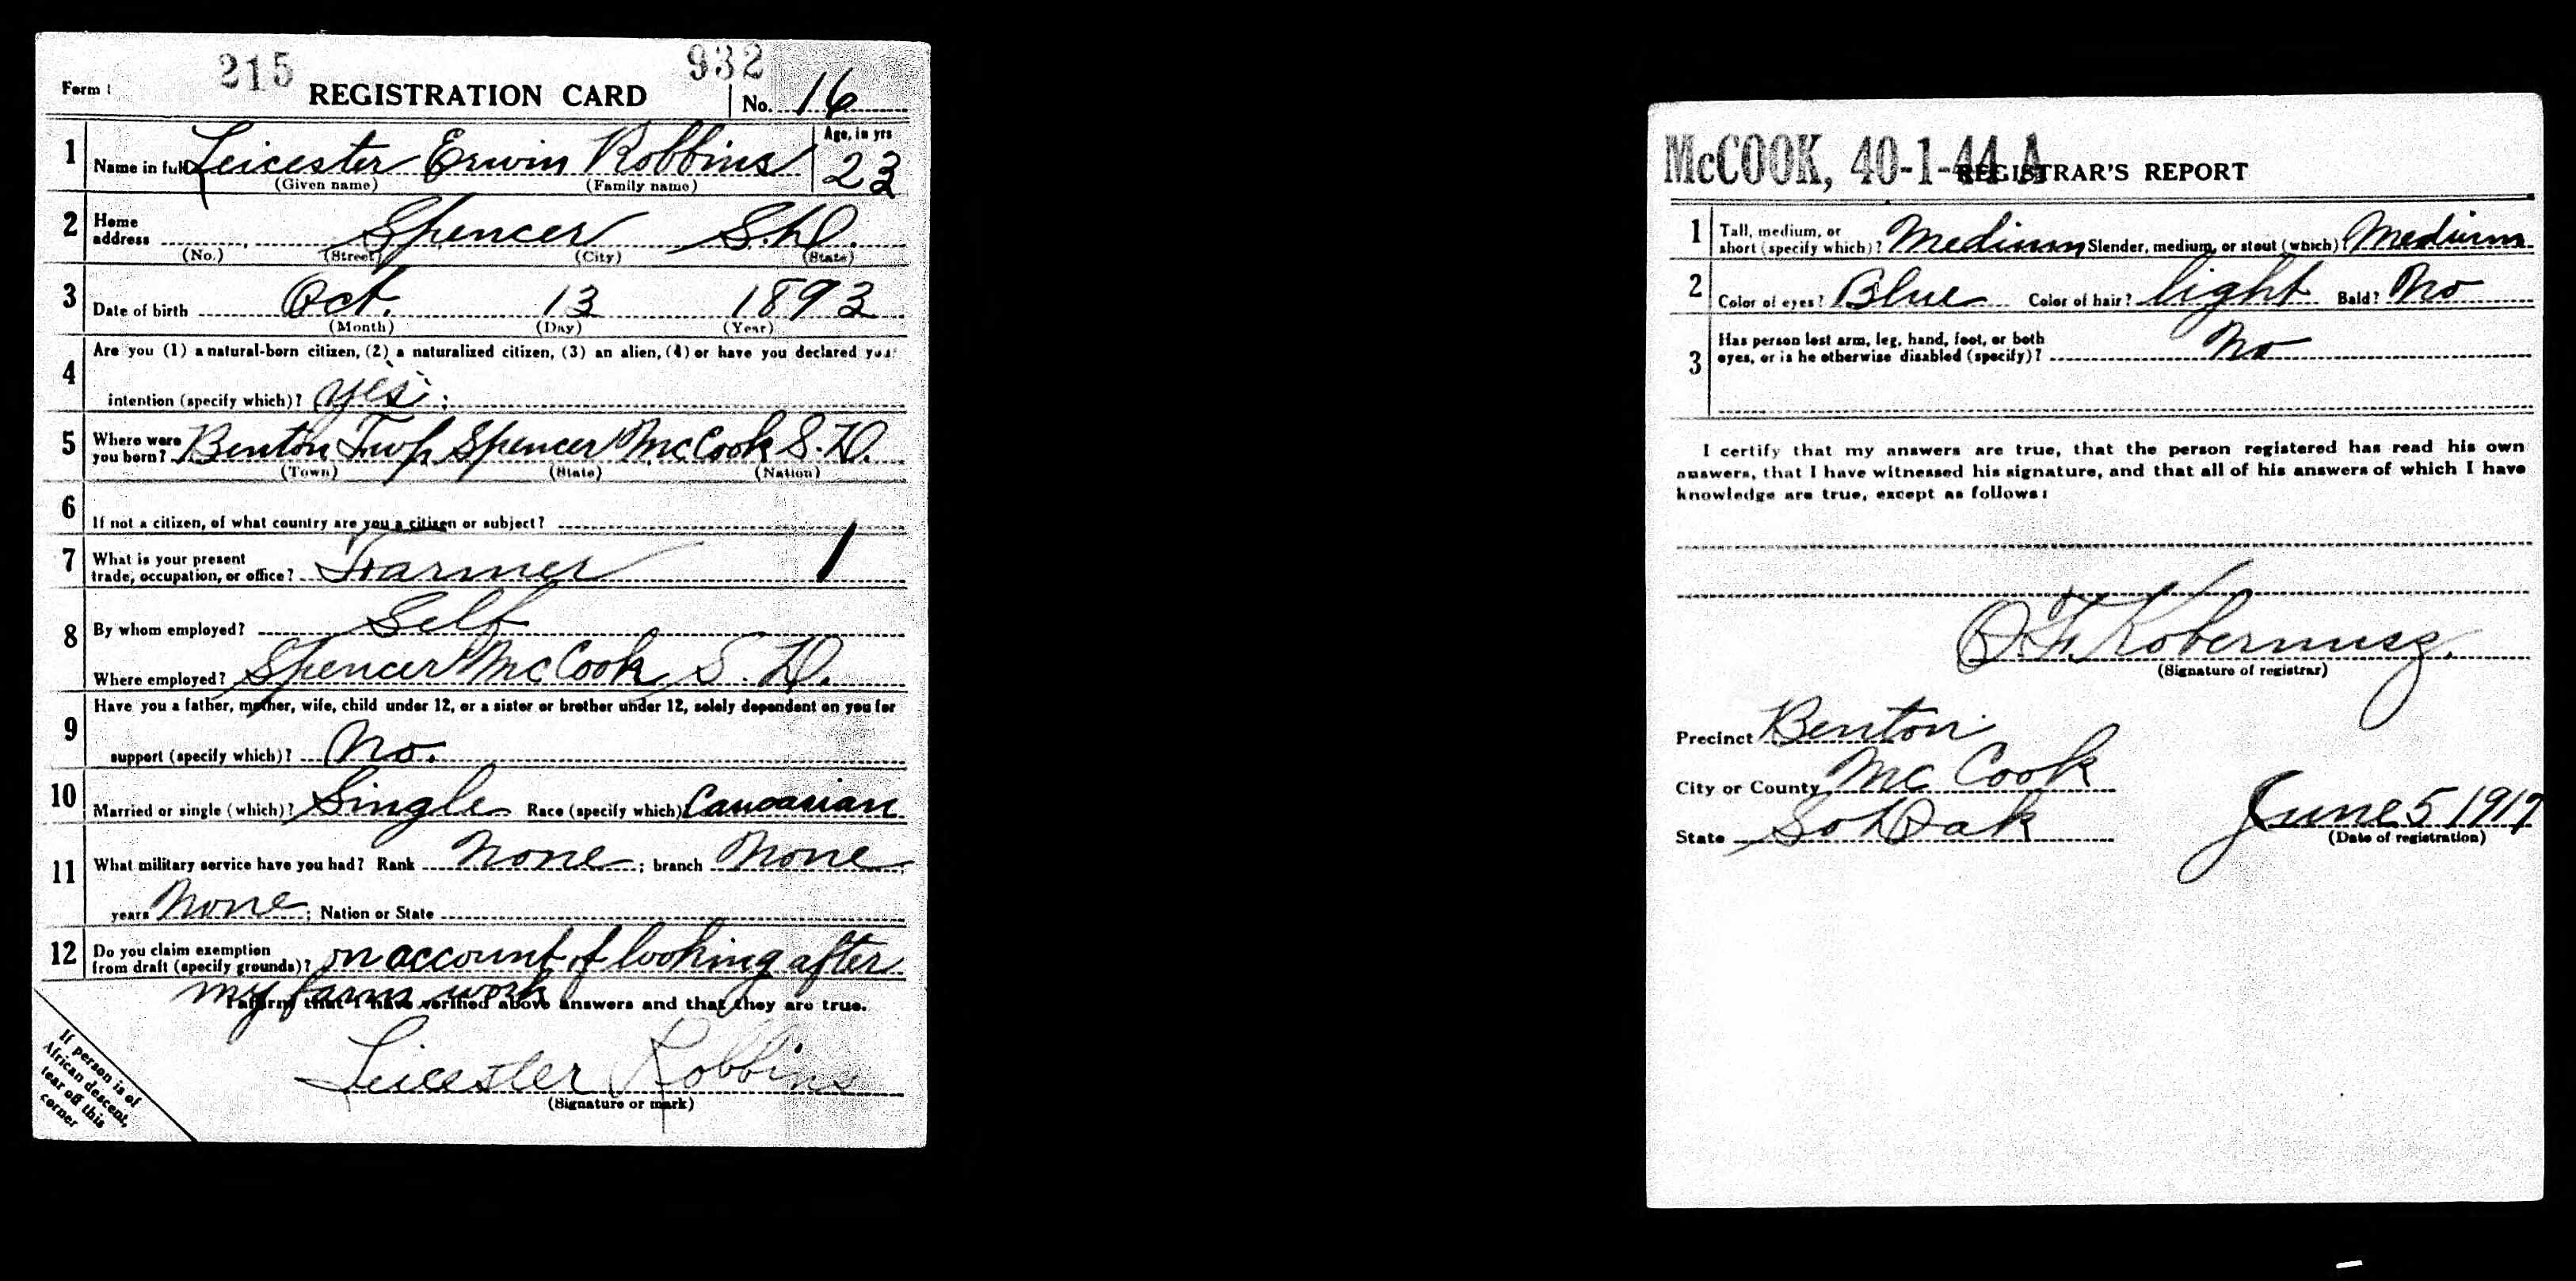 215 932
Form 1 REGISTRATION CARD No. 16
1 Name in full Leicester Erwin Robbins Age, in yrs 23
(Given name) (Family name)
2 Home address Spencer S.D.
(No.) (Street) (City) (State)
3 Date of birth Oct. 13 1893
(Month) (Day) (Year)
4 Are you (1) a natural-born citizen, (2) a naturalized citizen, (3) an alien, (4) or have you declared your
intention (specify which)? yes
5 Where were you born? Benton Twp Spencer McCook S.D.
(Town) (State) (Nation)
6 If not a citizen, of what country are you a citizen or subject?
7 What is your present trade, occupation, or office? Farmer 1
8 By whom employed? Self
Where employed? Spencer McCook S.D.
9 Have you a father, mother, wife, child under 12, or a sister or brother under 12, solely dependent on you for
support (specify which)? No.
10 Married or single (which)? Single Race (specify which)? Caucasian
11 What military service have you had? Rank None ; branch None
years None ; Nation or State
12 Do you claim exemption from draft (specify grounds)? on account of looking after
my farm work
I affirm that I have verified above answers and that they are true.
Leicester Robbins
(Signature or mark)
If person is of
African descent,
tear off this
corner
McCOOK, 40-1-44 A
REGISTRAR'S REPORT
1 Tall, medium, or short (specify which)? Medium Slender, medium, or stout (which)? Medium
2 Color of eyes? Blue Color of hair? light Bald? No
3 Has person lost arm, leg, hand, foot, or both
eyes, or is he otherwise disabled (specify)? No
I certify that my answers are true, that the person registered has read his own
answers, that I have witnessed his signature, and that all of his answers of which I have
knowledge are true, except as follows:
(Signature of registrar)
Precinct Benton
City or County McCook
State So Dak June 5 1917
(Date of registration)